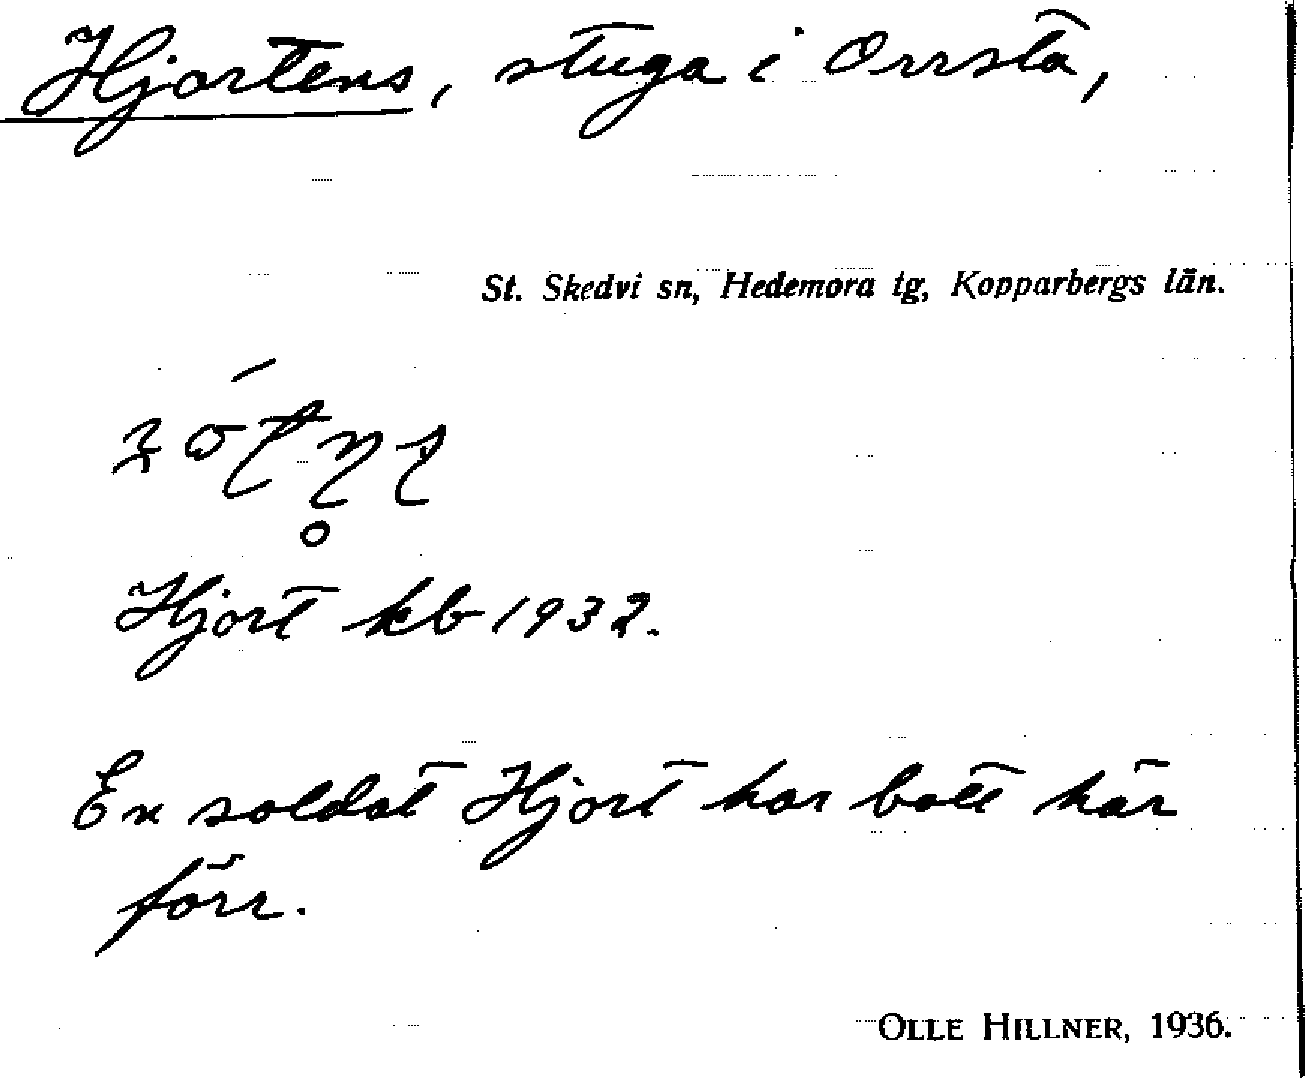 Hjortens, stuga i Orrsta,
St. Skedvi sn, Hedemora tg, Kopparbergs län.
Hjort kb 1932.
En soldat Hjort har bott här
förr.
OLLE HILLNER, 1936.